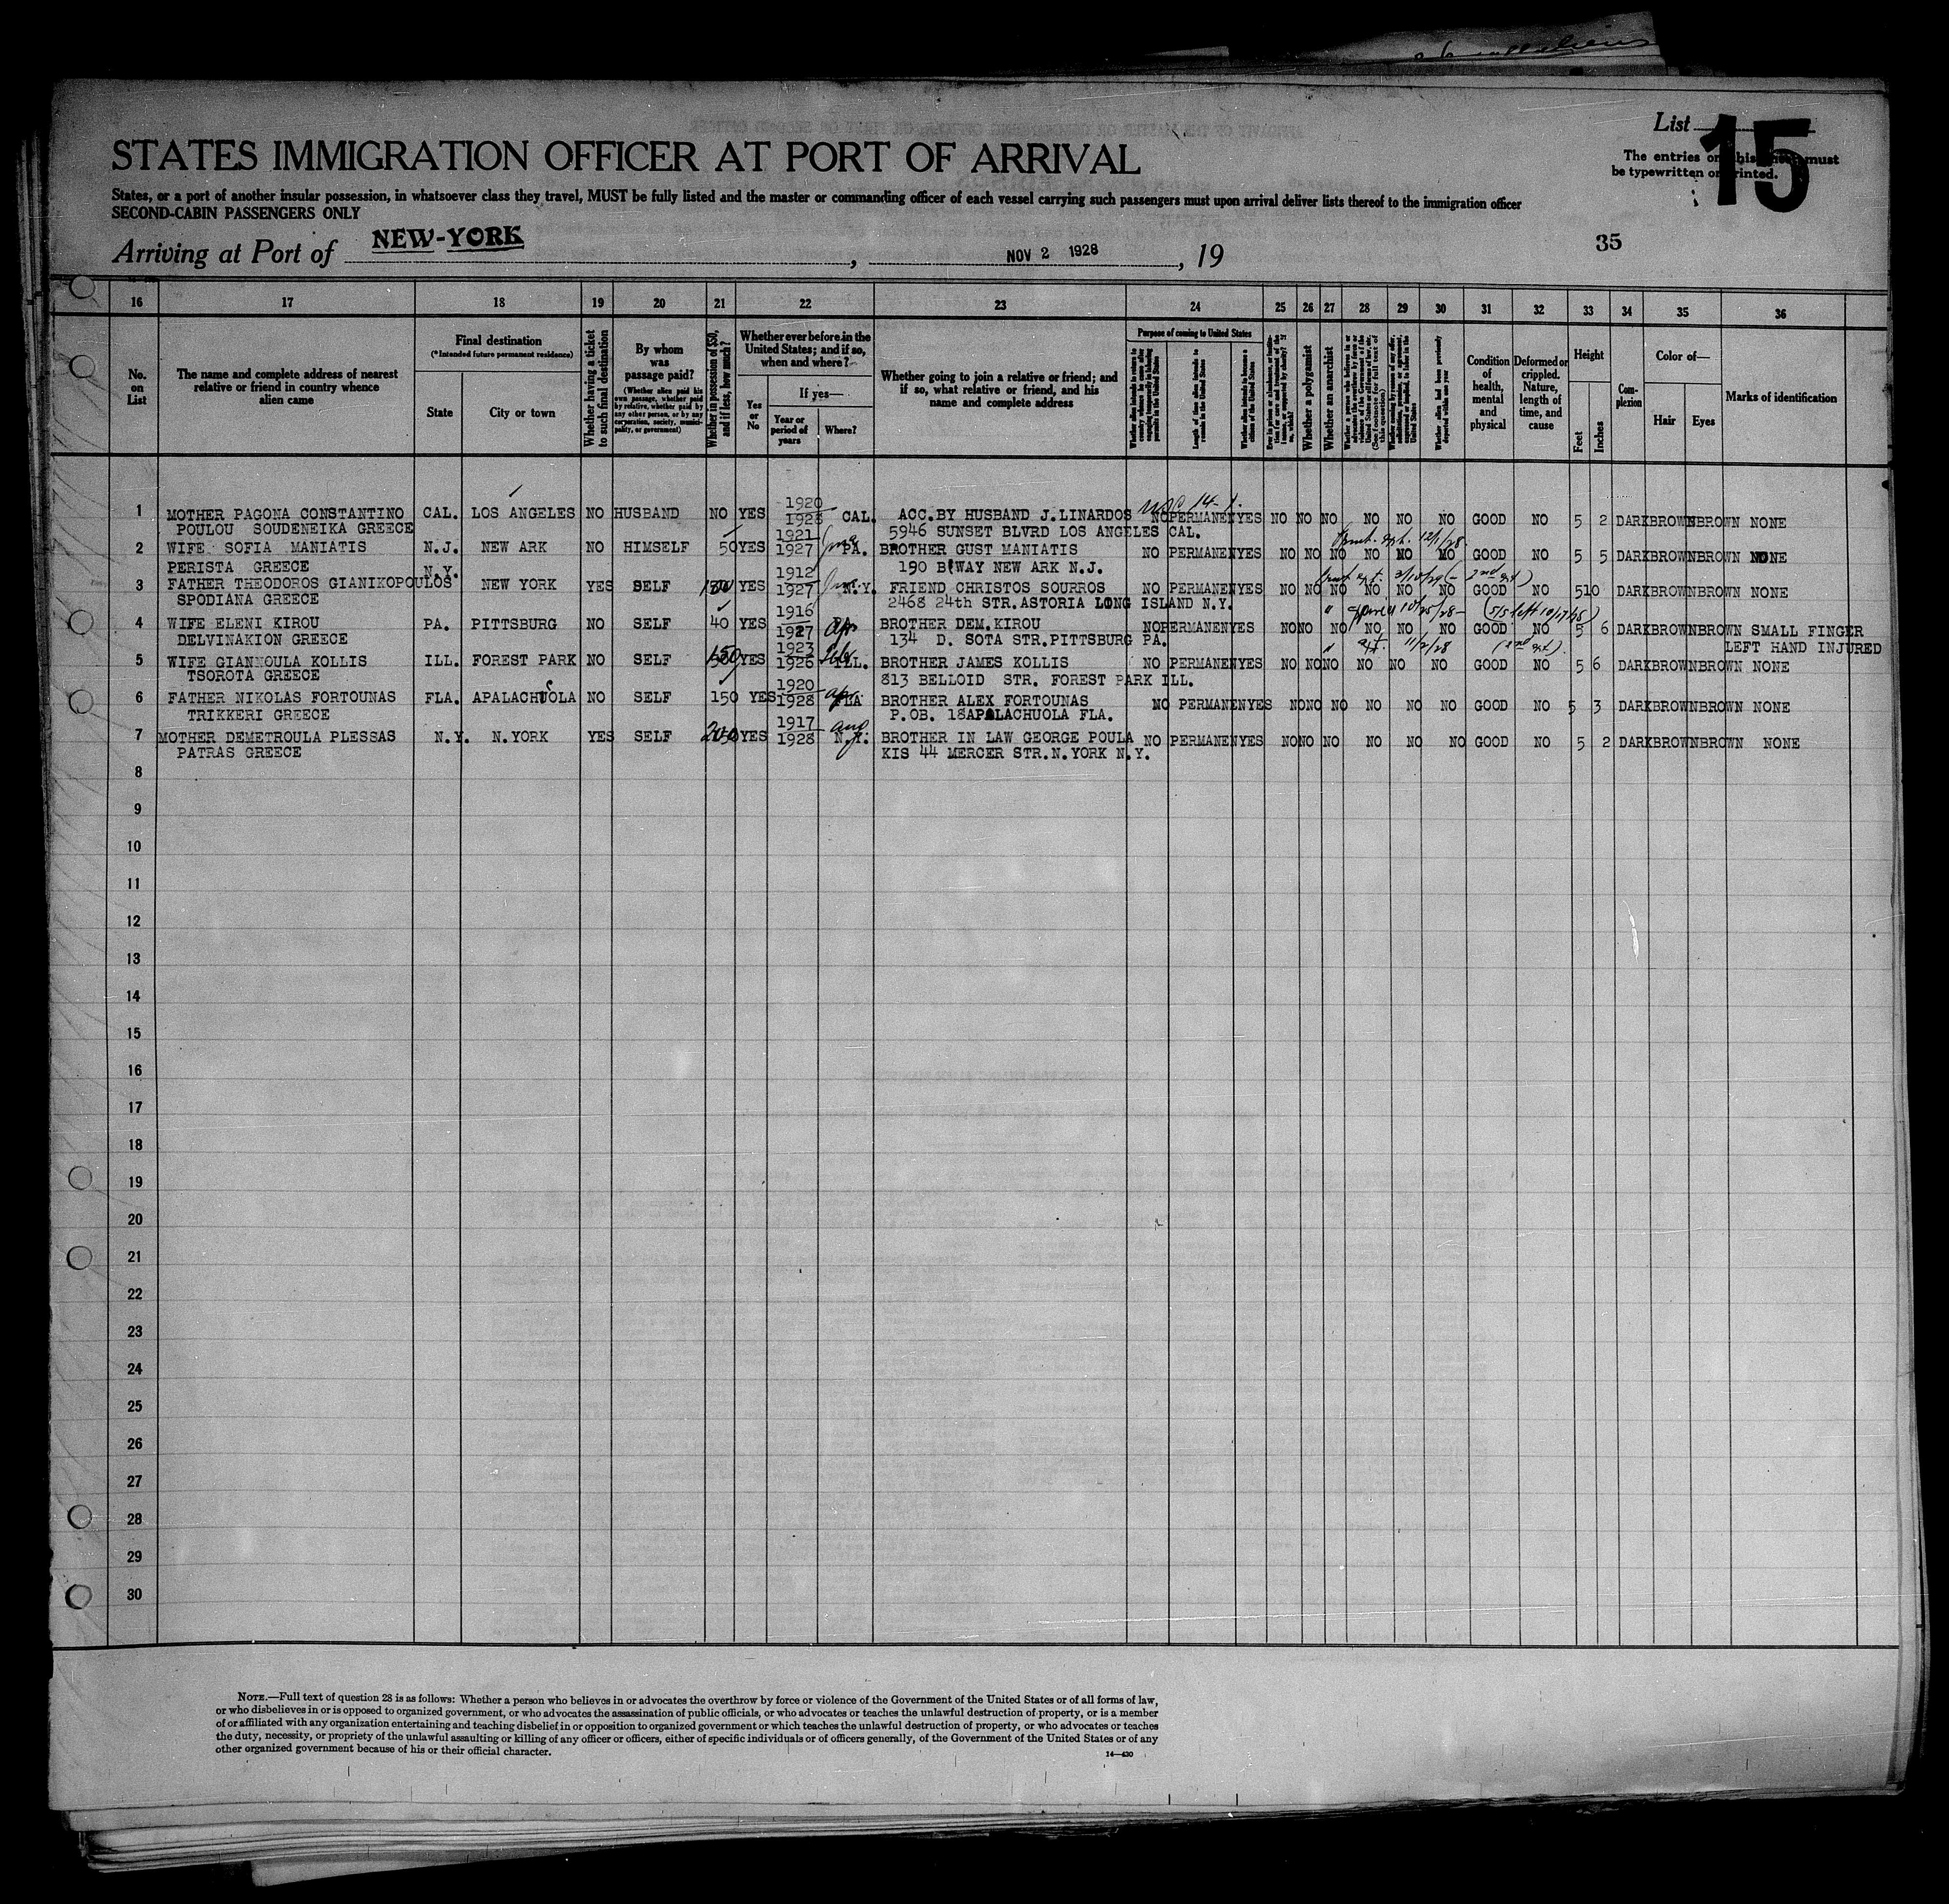 List 15
STATES IMMIGRATION OFFICER AT PORT OF ARRIVAL
The entries on this sheet must
be typewritten or printed.
States, or a port of another insular possession, in whatsoever class they travel, MUST be fully listed and the master or commanding officer of each vessel carrying such passengers must upon arrival deliver lists thereof to the immigration officer
SECOND-CABIN PASSENGERS ONLY
Arriving at Port of NEW-YORK, NOV 2 1928, 19
35
16 17 18 19 20 21 22 23 24 25 26 27 28 29 30 31 32 33 34 35 36
No. on List
The name and complete address of nearest relative or friend in country whence alien came
Final destination
(*Intended future permanent residence)
State
City or town
Whether having a ticket to such final destination
By whom was passage paid?
(Whether alien paid his own passage, whether paid by relative, whether paid by any other person, or by any corporation, society, municipality, or government)
Whether in possession of $50, and if less, how much?
Whether ever before in the United States; and if so, when and where?
Yes or No
If yes—
Year or period of years
Where?
Whether going to join a relative or friend; and if so, what relative or friend, and his name and complete address
Purpose of coming to United States
Length of time alien intends to remain in the United States
Whether alien intends to become a citizen of the United States
Whether a polygamist
Whether an anarchist
Whether alien had been previously deported within one year
Condition of health, mental and physical
Deformed or crippled. Nature, length of time, and cause
Height
Feet
Inches
Complexion
Color of—
Hair
Eyes
Marks of identification
1 MOTHER PAGONA CONSTANTINO CAL. LOS ANGELES NO HUSBAND NO YES 1920 1928 CAL. ACC.BY HUSBAND J.LINARDOS NO PERMANEN YES NO NO NO NO NO NO GOOD NO 5 2 DARK BROWN BROWN NONE
POULOU SOUDENEIKA GREECE 5946 SUNSET BLVRD LOS ANGELES CAL.
2 WIFE SOFIA MANIATIS N.J. NEW ARK NO HIMSELF 50 YES 1921 1927 PA. BROTHER GUST MANIATIS NO PERMANEN YES NO NO NO NO NO NO GOOD NO 5 5 DARK BROWN BROWN NONE
PERISTA GREECE 190 B'WAY NEW ARK N.J.
3 FATHER THEODOROS GIANIKOPOULOS N.Y. NEW YORK YES SELF YES 1912 1927 N.Y. FRIEND CHRISTOS SOURROS NO PERMANEN YES NO NO NO NO NO NO GOOD NO 5 10 DARK BROWN BROWN NONE
SPODIANA GREECE 2468 24th STR.ASTORIA LONG ISLAND N.Y.
4 WIFE ELENI KIROU PA. PITTSBURG NO SELF 40 YES 1916 1927 BROTHER DEM.KIROU NO PERMANEN YES NO NO NO NO NO NO GOOD NO 5 6 DARK BROWN BROWN SMALL FINGER
DELVINAKION GREECE 134 D. SOTA STR.PITTSBURG PA. LEFT HAND INJURED
5 WIFE GIANNOULA KOLLIS ILL. FOREST PARK NO SELF 150 YES 1923 1926 ILL. BROTHER JAMES KOLLIS NO PERMANEN YES NO NO NO NO NO NO GOOD NO 5 6 DARK BROWN BROWN NONE
TSOROTA GREECE 813 BELLOID STR. FOREST PARK ILL.
6 FATHER NIKOLAS FORTOUNAS FLA. APALACHUOLA NO SELF 150 YES 1920 1928 FLA BROTHER ALEX FORTOUNAS NO PERMANEN YES NO NO NO NO NO NO GOOD NO 5 3 DARK BROWN BROWN NONE
TRIKKERI GREECE P.OB. 18 APALACHUOLA FLA.
7 MOTHER DEMETROULA PLESSAS N.Y. N.YORK YES SELF 200 YES 1917 1928 N.Y. BROTHER IN LAW GEORGE POULA NO PERMANEN YES NO NO NO NO NO NO GOOD NO 5 2 DARK BROWN BROWN NONE
PATRAS GREECE KIS 44 MERCER STR.N.YORK N.Y.
8
9
10
11
12
13
14
15
16
17
18
19
20
21
22
23
24
25
26
27
28
29
30
NOTE.—Full text of question 28 is as follows: Whether a person who believes in or advocates the overthrow by force or violence of the Government of the United States or of all forms of law,
or who disbelieves in or is opposed to organized government, or who advocates the assassination of public officials, or who advocates or teaches the unlawful destruction of property, or is a member
of or affiliated with any organization entertaining and teaching disbelief in or opposition to organized government or which teaches the unlawful destruction of property, or who advocates or teaches
the duty, necessity, or propriety of the unlawful assaulting or killing of any officer or officers, either of specific individuals or of officers generally, of the Government of the United States or of any
other organized government because of his or their official character.
14—430